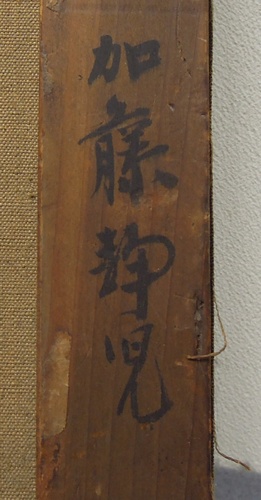 加藤静児